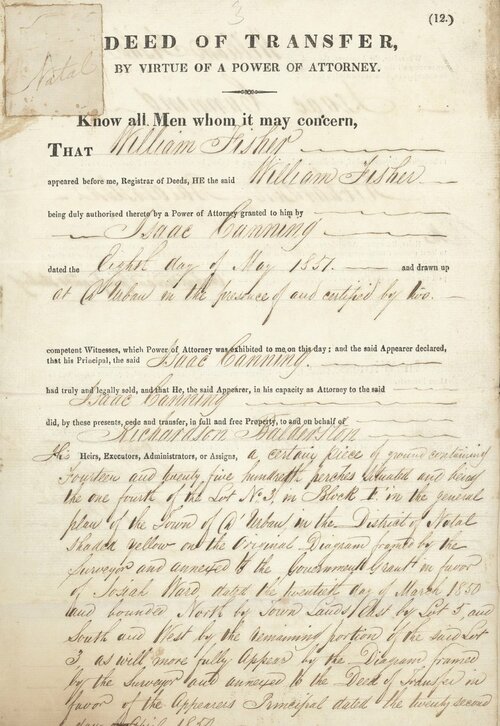 3
(12.)
Natal
DEED OF TRANSFER,
BY VIRTUE OF A POWER OF ATTORNEY.
Know all Men whom it may concern,
THAT William Fisher
appeared before me, Registrar of Deeds, HE the said William Fisher
being duly authorised thereto by a Power of Attorney granted to him by
Isaac Canning
dated the Eighth day of May 1851. and drawn up
at D'Urban in the presence of and certified by two
competent Witnesses, which Power of Attorney was exhibited to me on this day; and the said Appearer declared,
that his Principal, the said Isaac Canning
had truly and legally sold, and that He, the said Appearer, in his capacity as Attorney to the said
Isaac Canning
did, by these presents, cede and transfer, in full and free Property, to and on behalf of
Richardson Balderston
His Heirs, Executors, Administrators, or Assigns, a certain piece of ground containing
Fourteen and twenty five hundredth perches situated and being
the one fourth of the Lot No 3, in Block E in the general
plan of the Town of D'Urban in the District of Natal
shaded yellow on the Original Diagram framed by the
Surveyor and annexed to the Government Grant in favor
of Josiah Ward dated the twentieth day of March 1850
and bounded North by Town Lands East by Lot 5 and
South and West by the remaining portion of the said Lot
3, as will more fully Appear by the Diagram framed
by the Surveyor and annexed to the Deed of Transfer in
favor of the Appearers Principal dated the twenty second
day April 1850